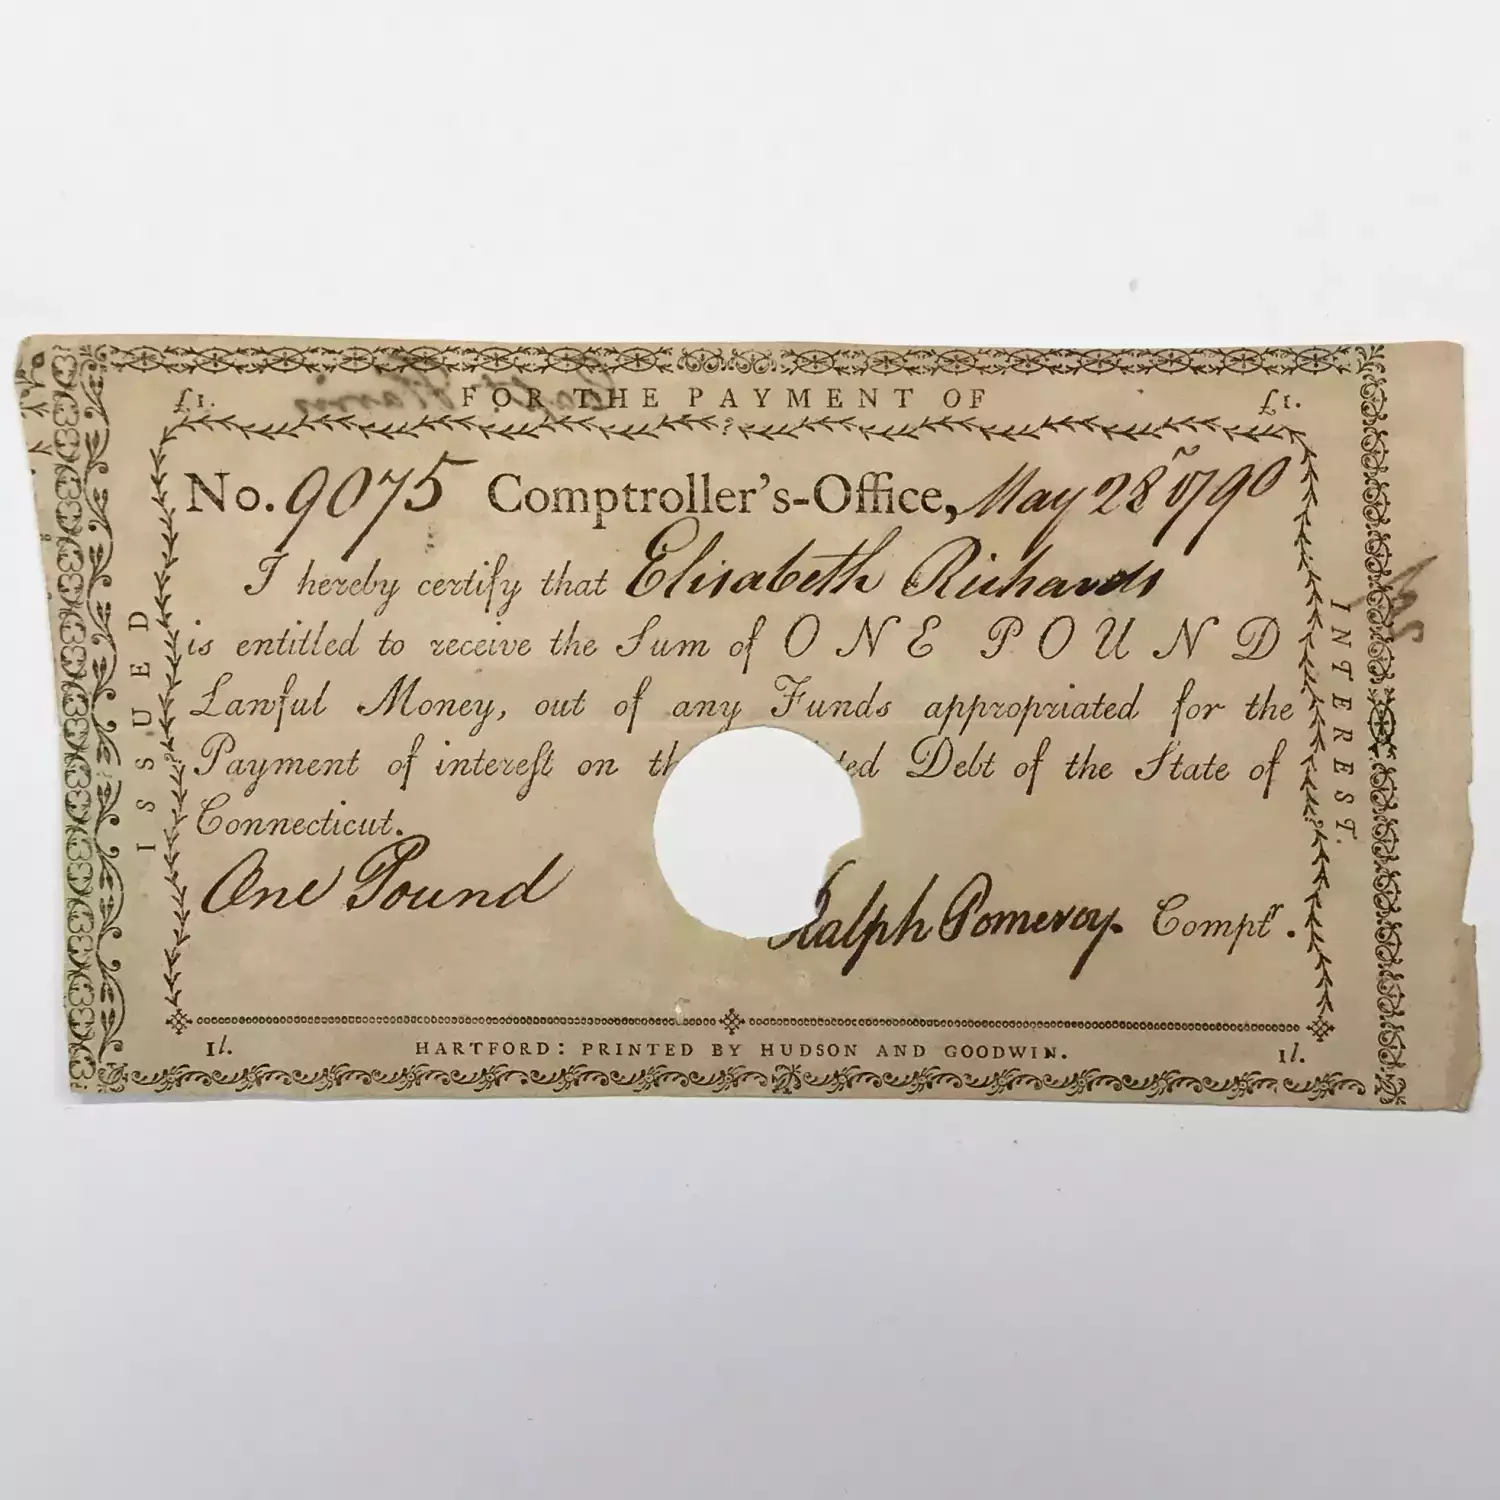 £1. FOR THE PAYMENT OF £1.
No. 9075 Comptroller's-Office, May 28th 1790
I hereby certify that Elisabeth Richards
is entitled to receive the Sum of ONE POUND
Lawful Money, out of any Funds appropriated for the
Payment of intereſt on th ted Debt of the State of
Connecticut.
One Pound
Ralph Pomeroy. Comptr.
1l. HARTFORD: PRINTED BY HUDSON AND GOODWIN. 1l.
ISSUED
INTEREST.